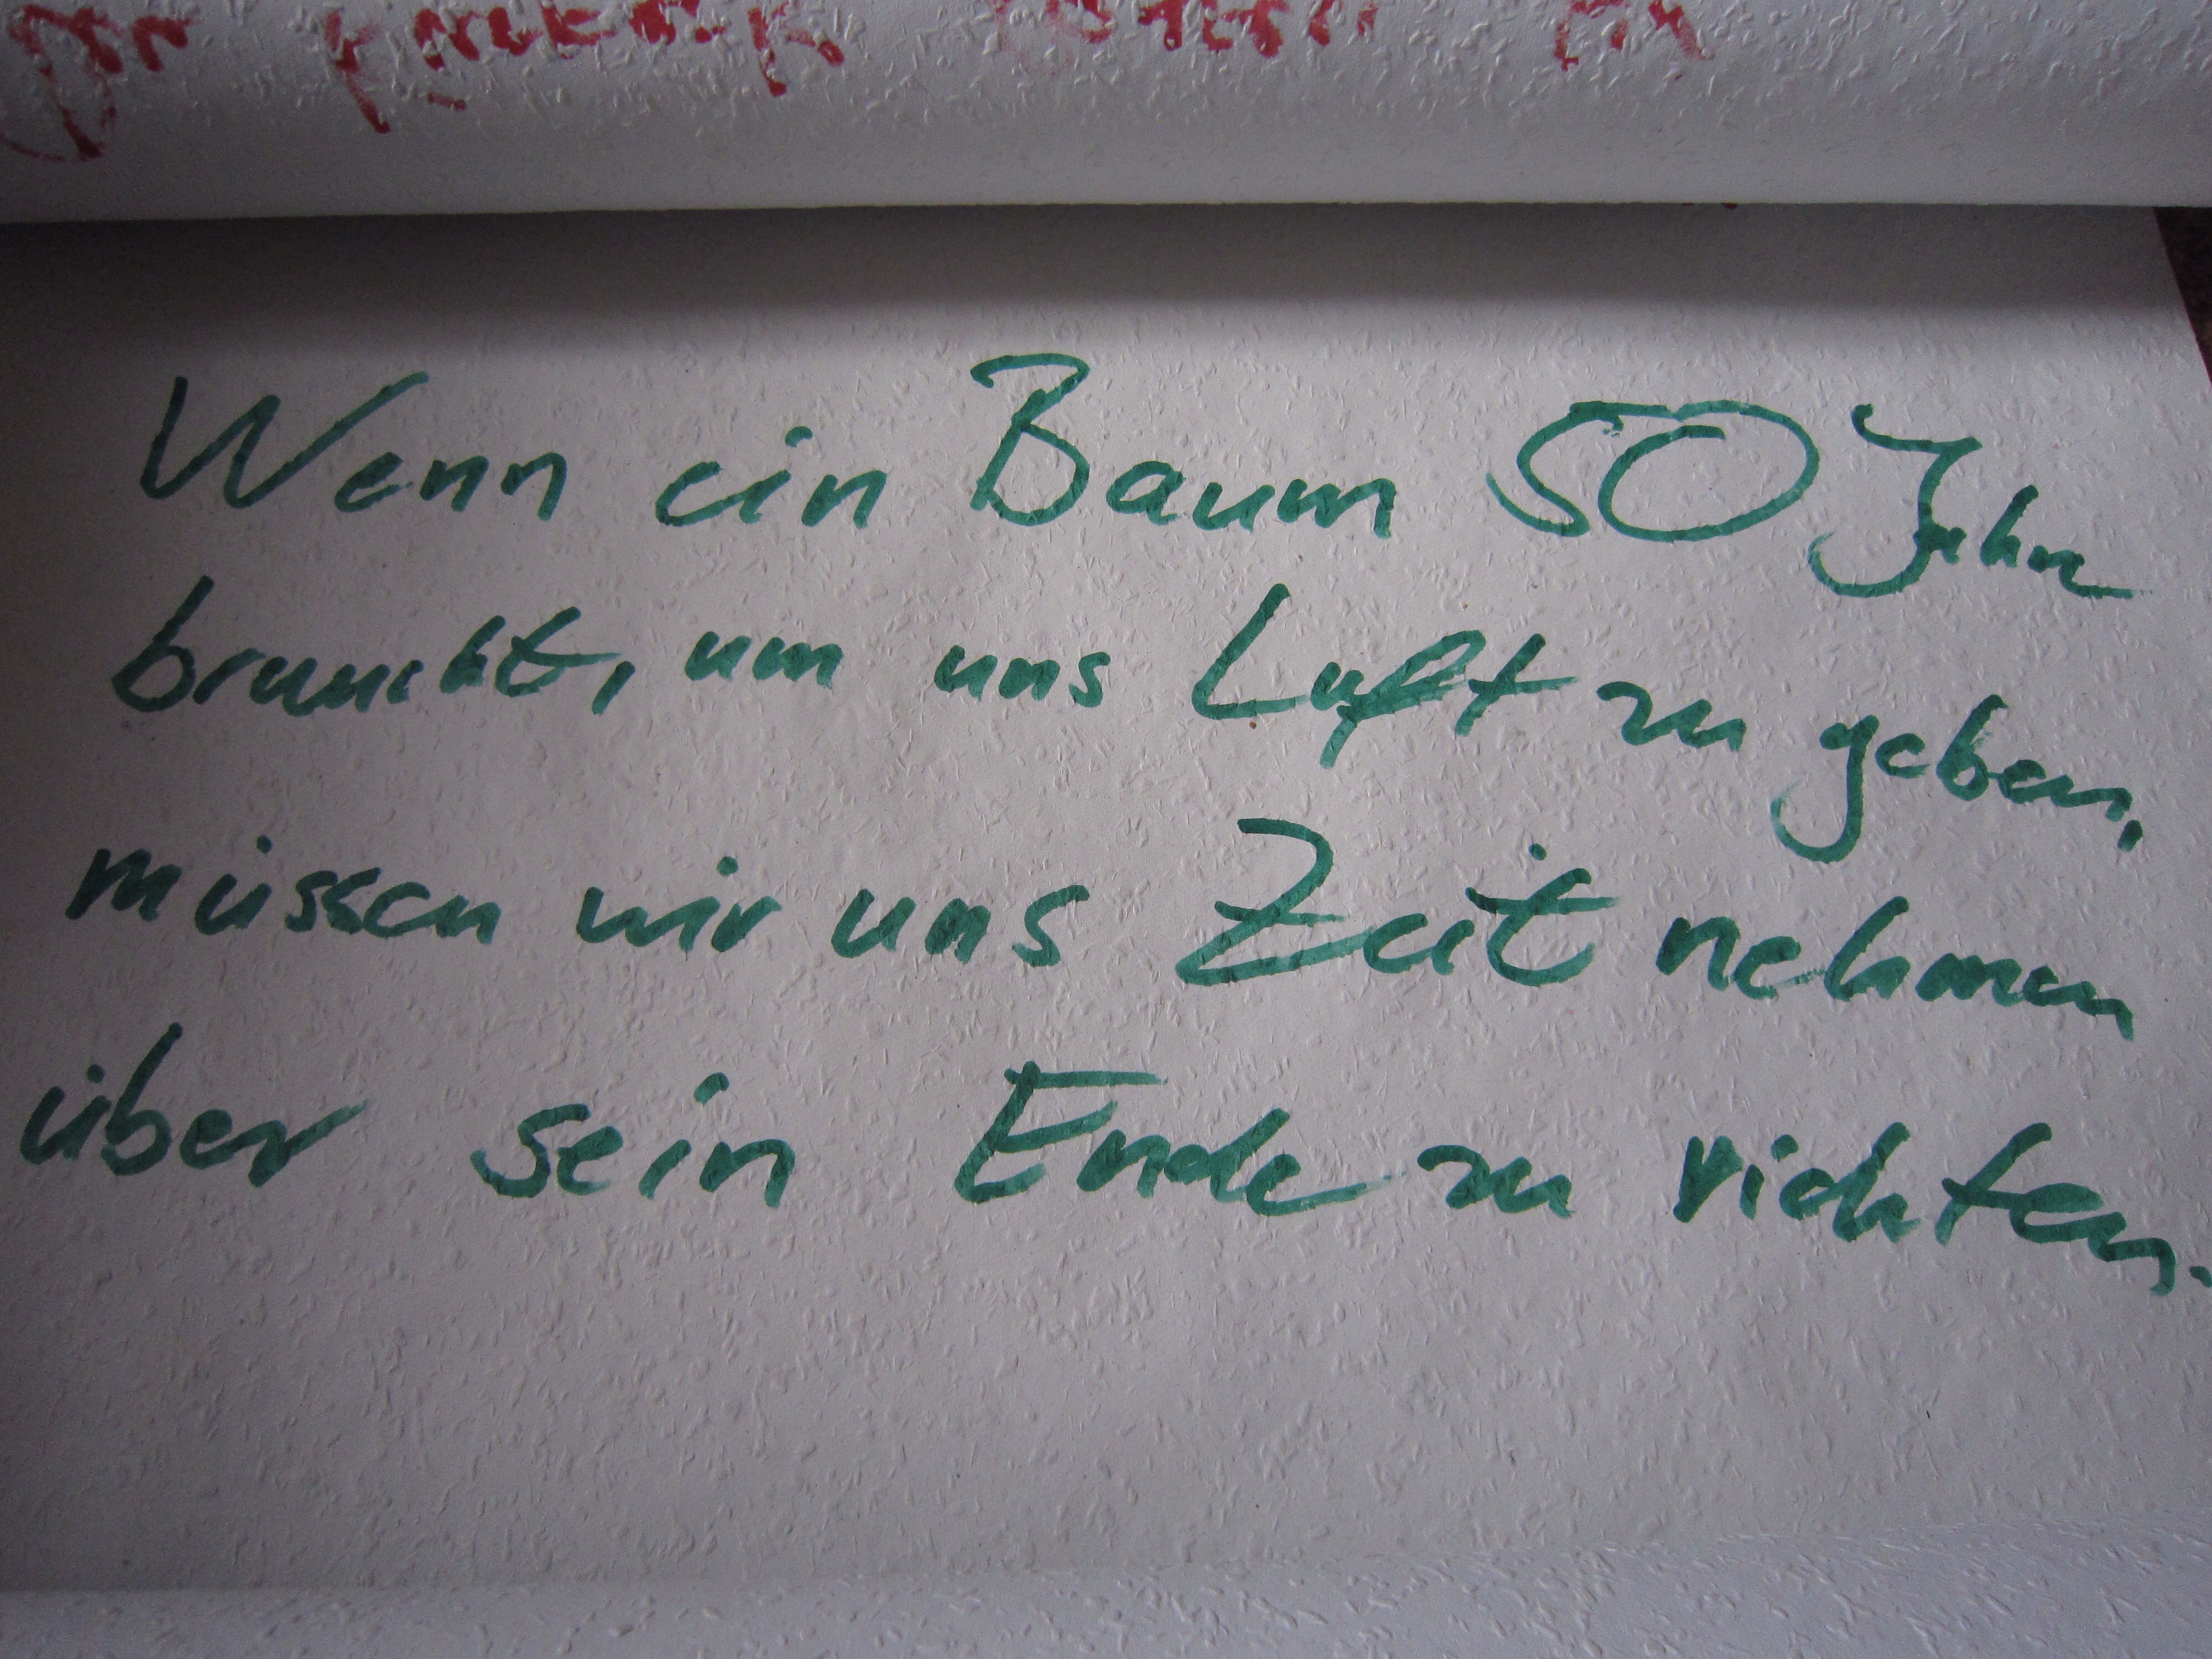 Wenn ein Baum 50 Jahre
braucht, um uns Luft zu geben,
müssen wir uns Zeit nehmen
über sein Ende zu richten.